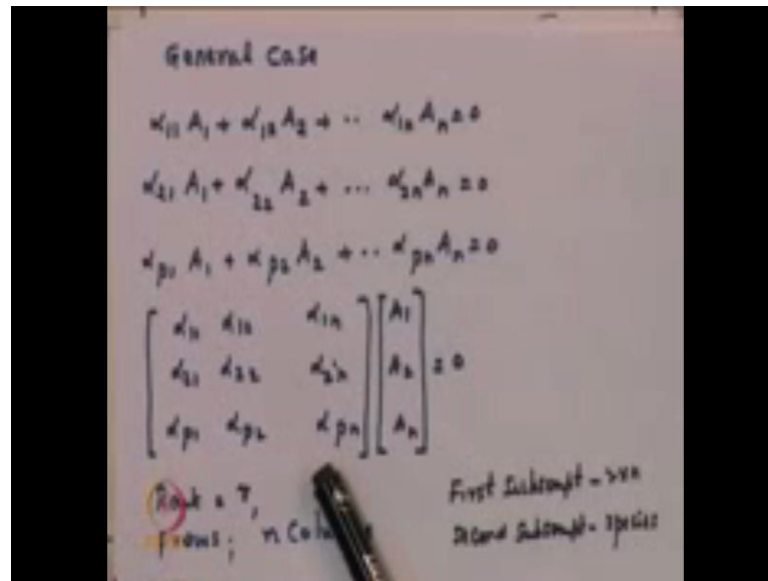 General Case
α₁₁ A₁ + α₁₂ A₂ + ·· α₁ₙ Aₙ = 0
α₂₁ A₁ + α₂₂ A₂ + ... α₂ₙ Aₙ = 0
αₚ₁ A₁ + αₚ₂ A₂ + ·· αₚₙ Aₙ = 0
[ α₁₁ α₁₂ α₁ₙ ] [ A₁ ]
[ α₂₁ α₂₂ α₂ₙ ] [ A₂ ] = 0
[ αₚ₁ αₚ₂ αₚₙ ] [ Aₙ ]
Rank = r,
p rows; n
First Subscript - rxn
Second Subscript - species